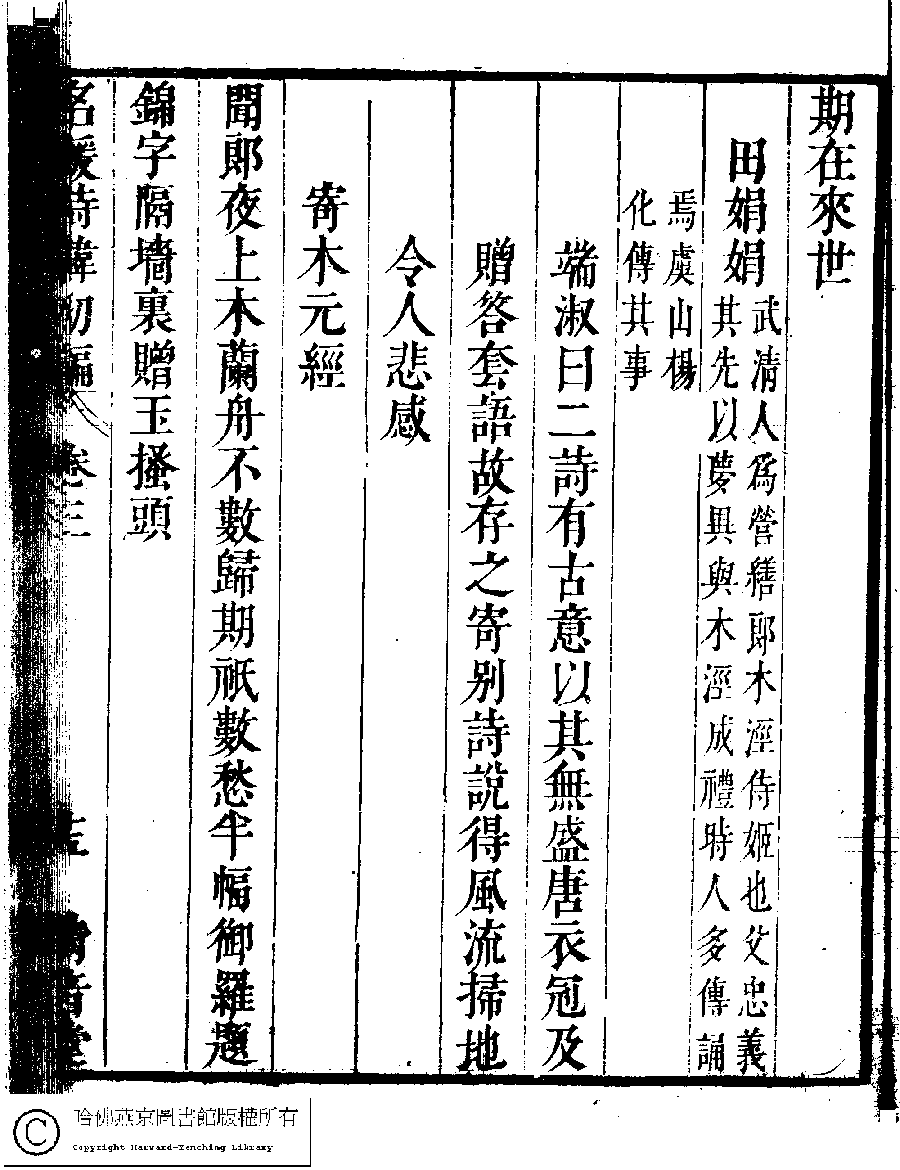 期在來世
田娟娟
武清人爲營繕郎木涇侍姬也父忠義
其先以夢興與木涇成禮時人多傳誦
焉虞山楊
化傳其事
端淑曰二詩有古意以其無盛唐衣冠及
贈答套語故存之寄別詩說得風流掃地
令人悲感
寄木元經
聞郎夜上木蘭舟不數歸期祇數愁半幅御羅題
錦字隔墻裏贈玉搔頭
名媛詩緯初編 卷三
© 哈佛燕京圖書館版權所有
Copyright Harvard-Yenching Library